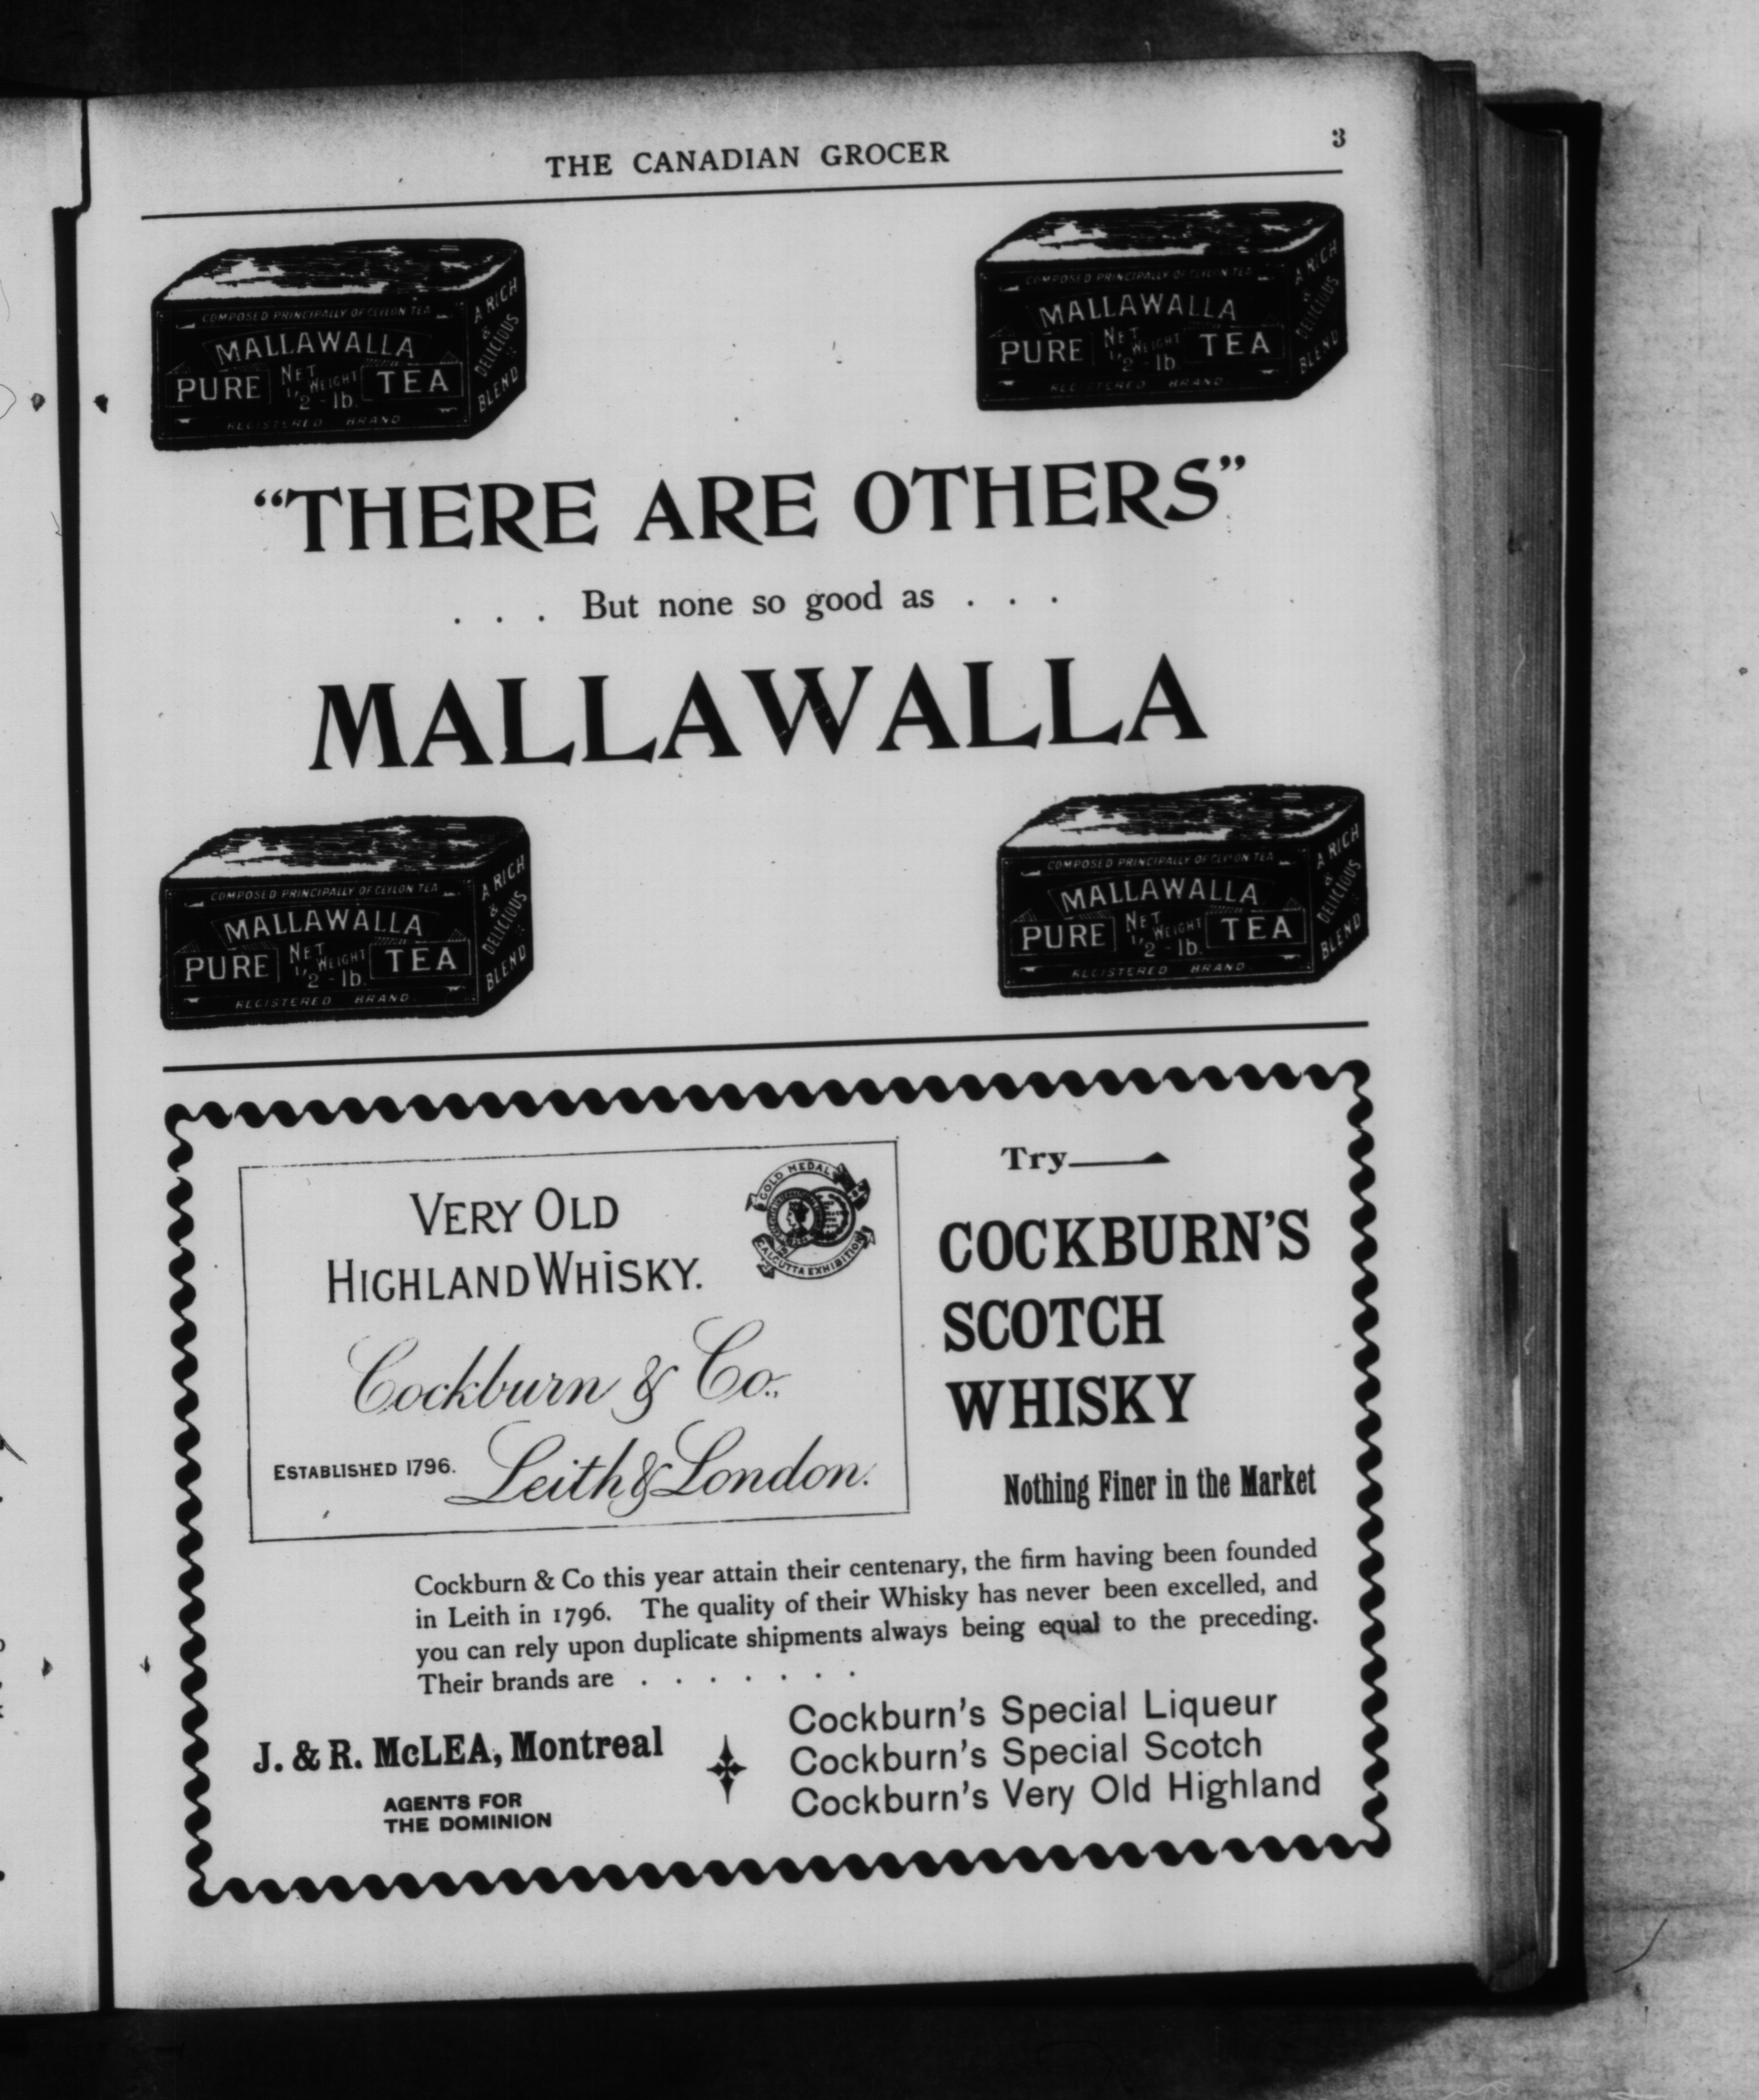 THE CANADIAN GROCER
3
COMPOSED PRINCIPALLY OF CEYLON TEA
MALLAWALLA
PURE NET WEIGHT 1/2-lb. TEA
REGISTERED BRAND
A RICH & DELICIOUS BLEND
COMPOSED PRINCIPALLY OF CEYLON TEA
MALLAWALLA
PURE NET WEIGHT 1/2-lb. TEA
REGISTERED BRAND
A RICH & DELICIOUS BLEND
“THERE ARE OTHERS”
. . . But none so good as . . .
MALLAWALLA
COMPOSED PRINCIPALLY OF CEYLON TEA
MALLAWALLA
PURE NET WEIGHT 1/2-lb. TEA
REGISTERED BRAND
A RICH & DELICIOUS BLEND
COMPOSED PRINCIPALLY OF CEYLON TEA
MALLAWALLA
PURE NET WEIGHT 1/2-lb. TEA
REGISTERED BRAND
A RICH & DELICIOUS BLEND
VERY OLD
HIGHLAND WHISKY.
GOLD MEDAL
CALCUTTA EXHIBITION
Cockburn & Co.,
ESTABLISHED 1796. Leith & London.
Try
COCKBURN'S
SCOTCH
WHISKY
Nothing Finer in the Market
Cockburn & Co this year attain their centenary, the firm having been founded
in Leith in 1796. The quality of their Whisky has never been excelled, and
you can rely upon duplicate shipments always being equal to the preceding.
Their brands are . . . . . . .
J. & R. McLEA, Montreal
AGENTS FOR
THE DOMINION
Cockburn's Special Liqueur
Cockburn's Special Scotch
Cockburn's Very Old Highland